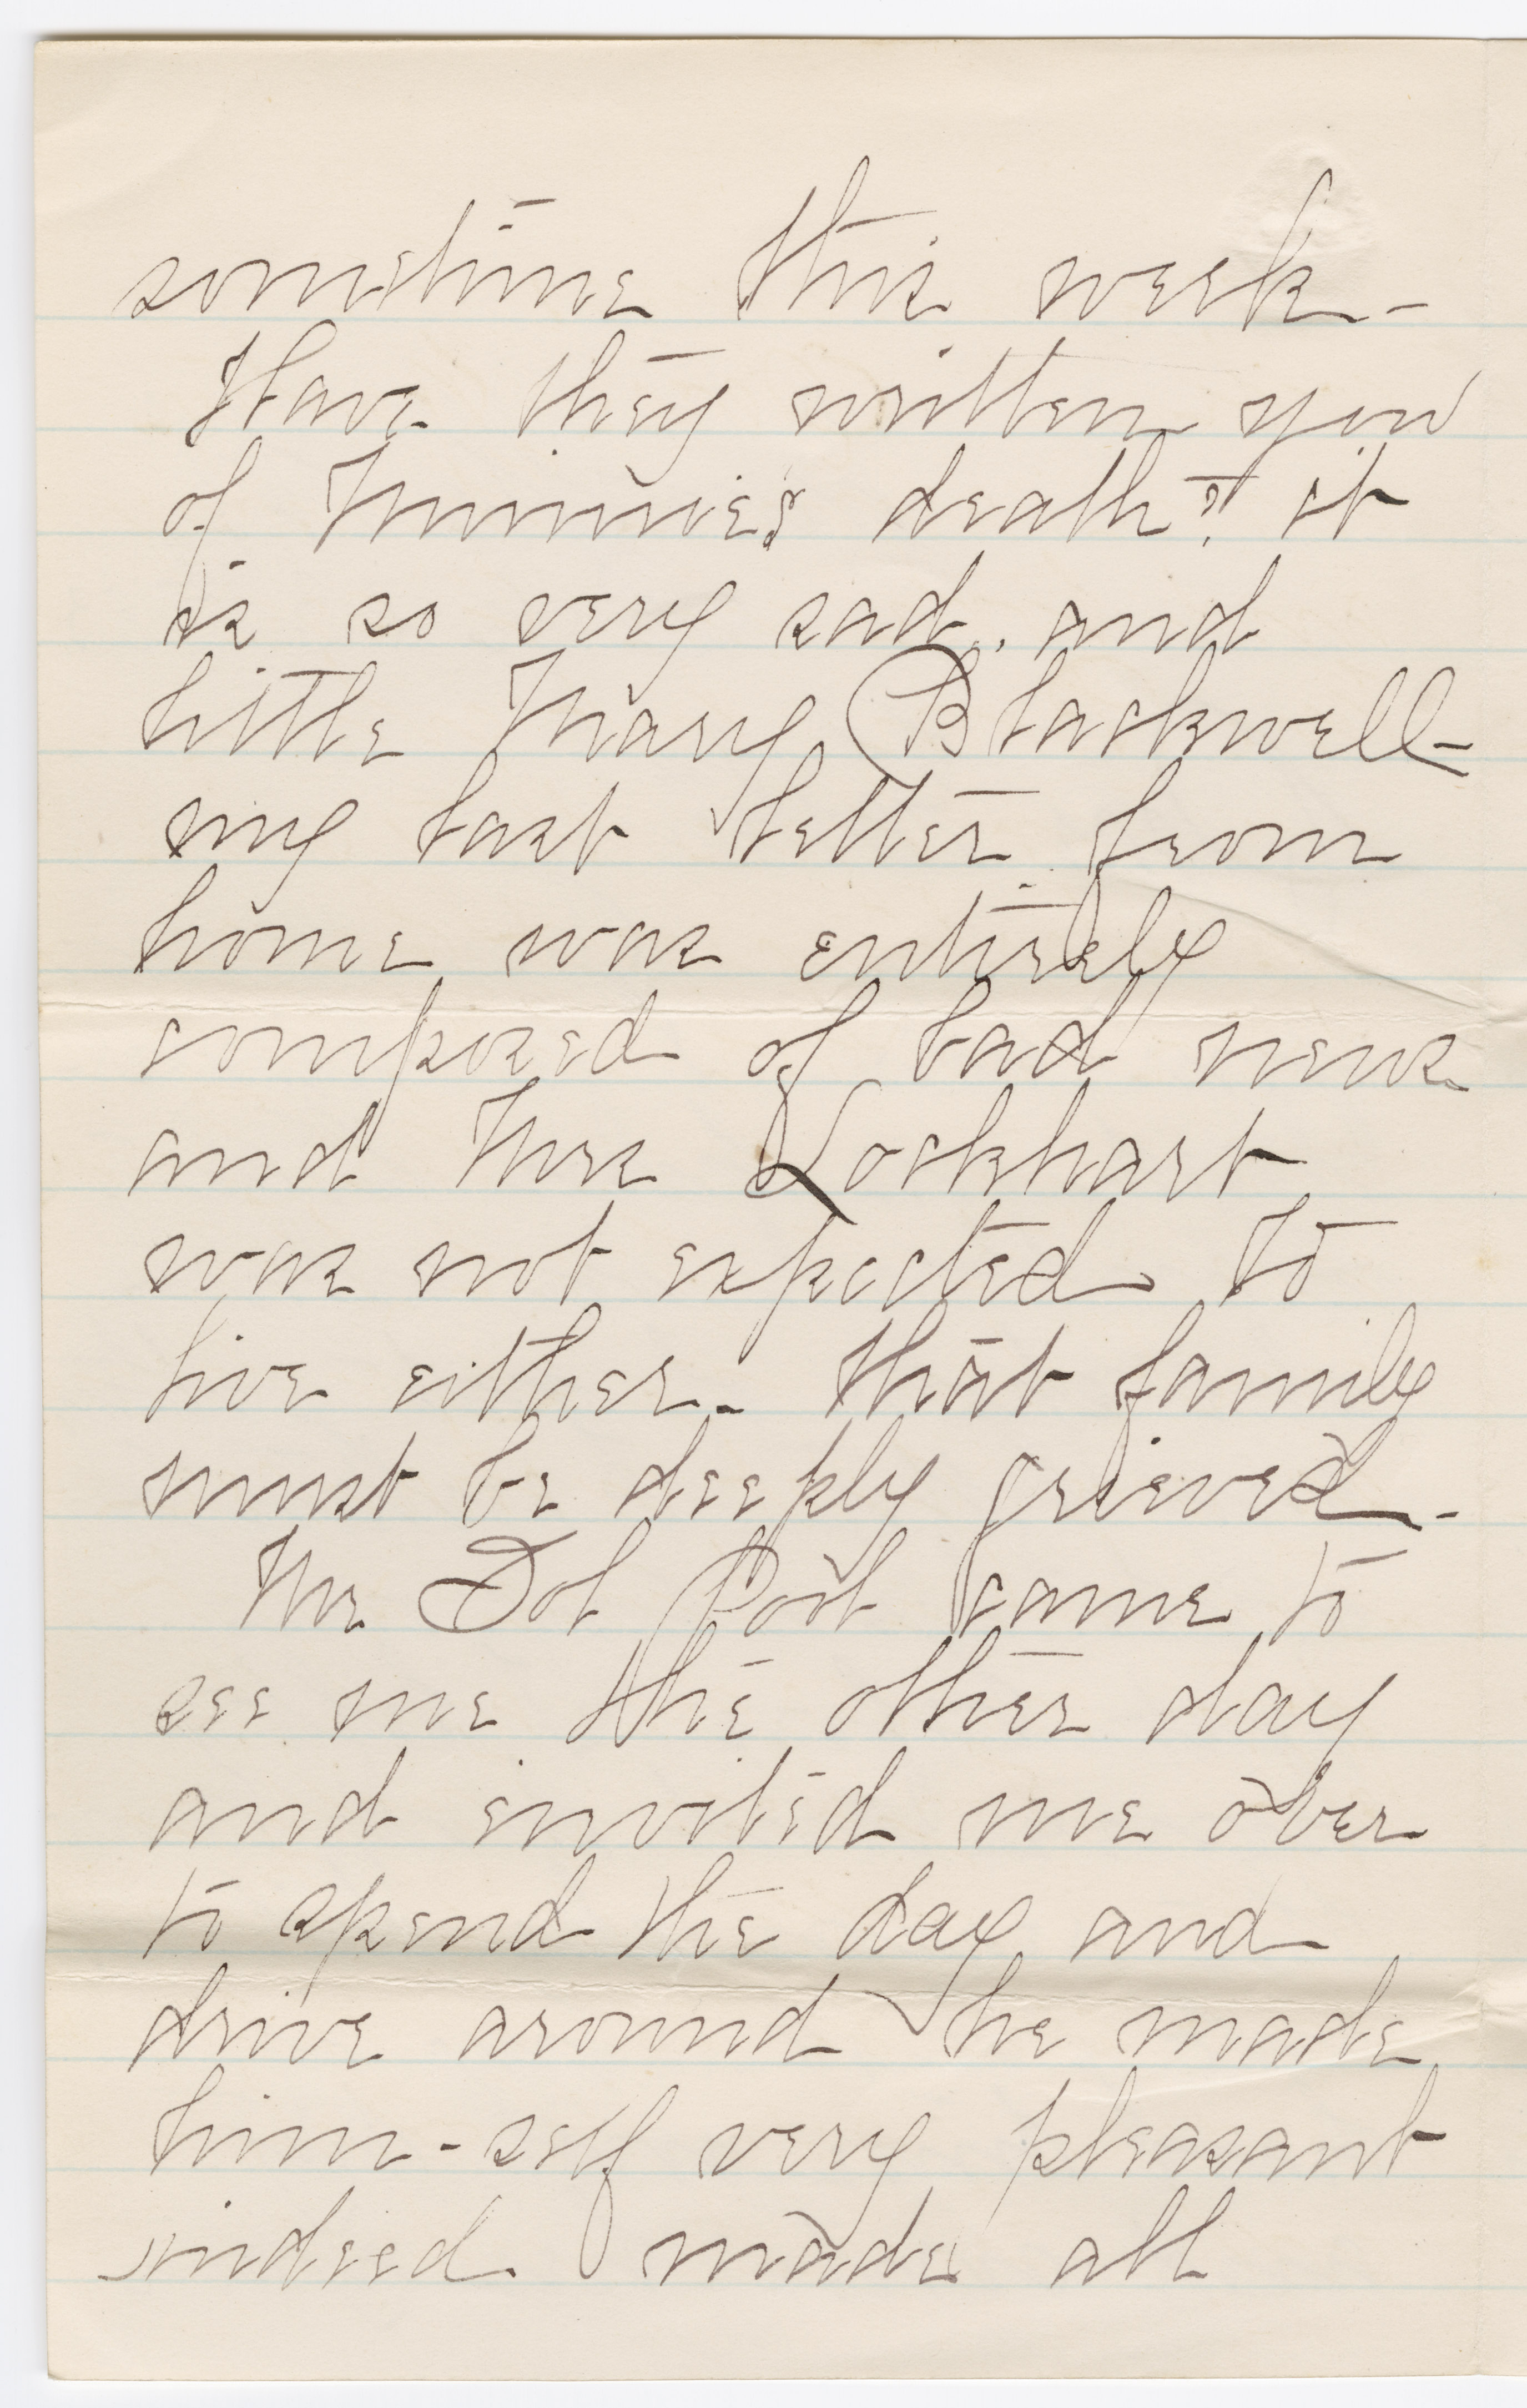 sometime this week-
Have they written you
of Minnie's death? it
is so very sad. and
little Mary Blackwell-
my last letter from
home was entirely
composed of bad news
and Mrs Lockhart
was not expected to
live either- that family
must be deeply grieved-
Mr Dol Post came to
see me the other day
and invited me over
to spend the day and
drive around he made
him-self very pleasant
indeed made all